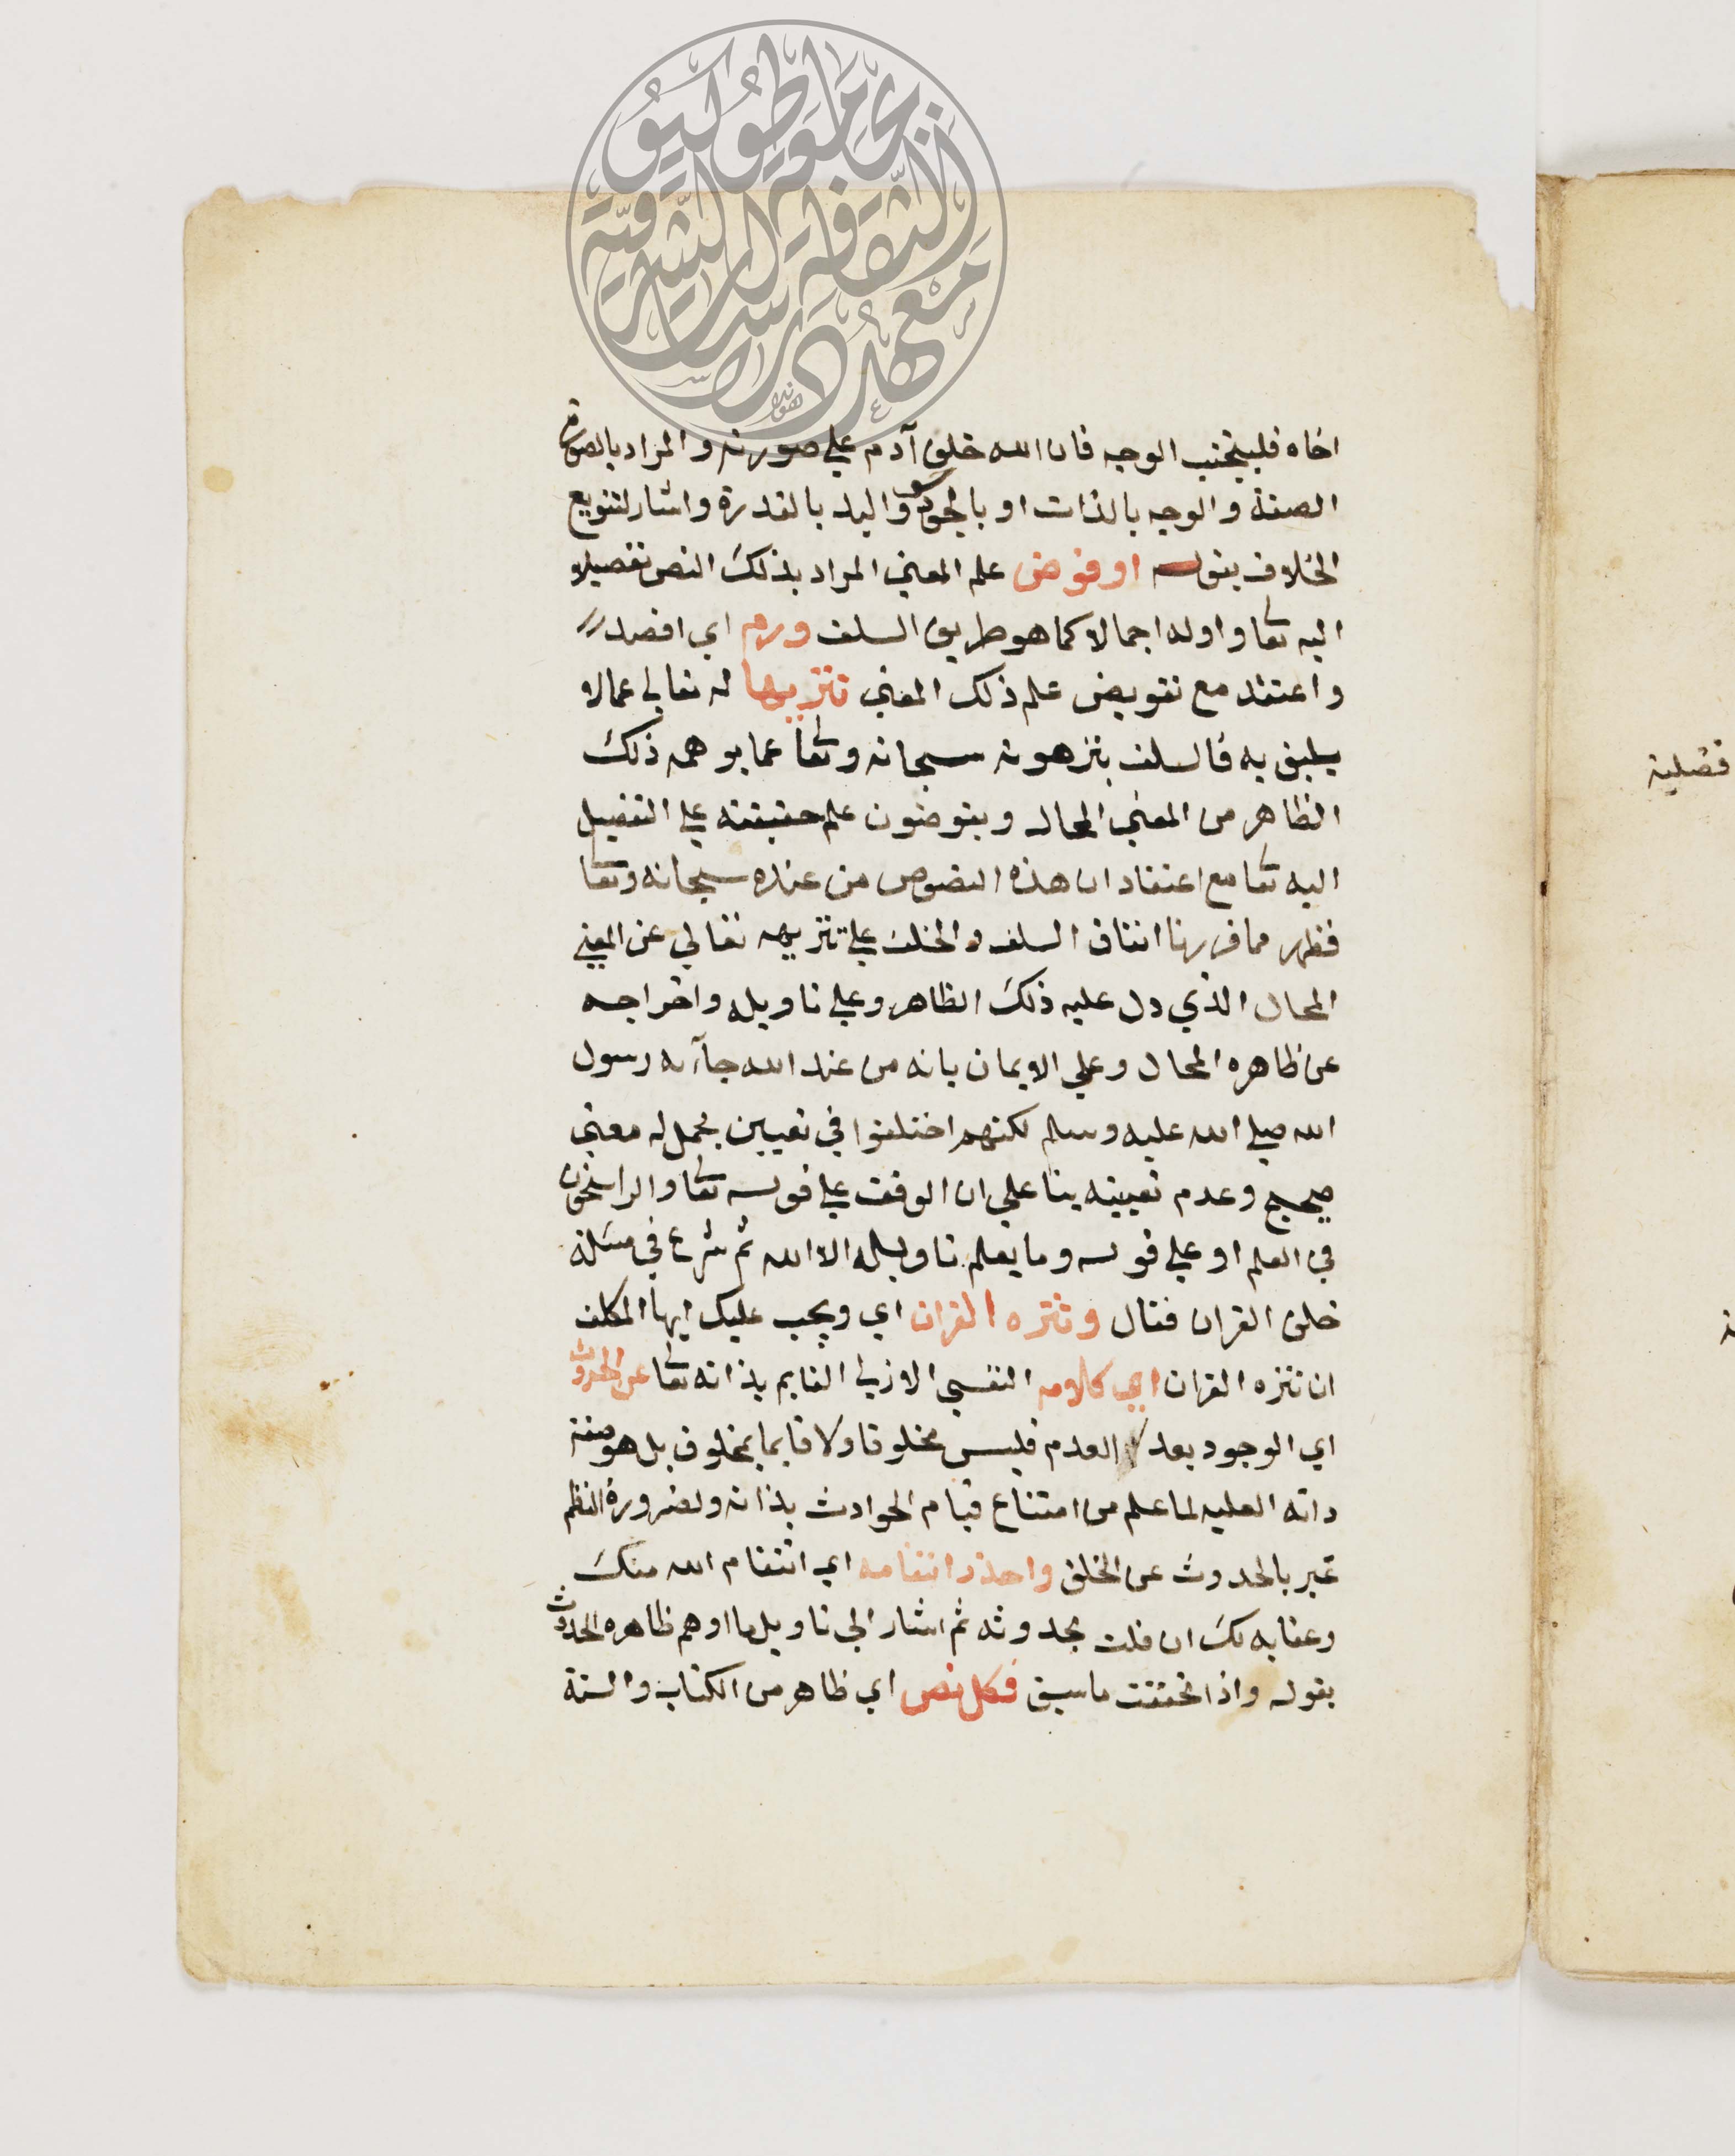 اخاه فليجتنب الوجه فان الله خلق آدم علي صورته والمراد بالصورة
الصفة والوجه بالذات او بالوجود واليد بالقدرة واشار لتنويع
الخلاف بقوله او فوض علم المعني المراد بذلك النص تفصيلا
اليه تعا واوله اجمالا كما هو طريق السلف ورم اي اقصد
واعتقد مع تفويض علم ذلك المعني تنزيها له تعالي عمالا
يليق به فالسلف ينزهونه سبحانه وتعا عما يوهمه ذلك
الظاهر من المعني المحال ويفوضون علم حقيقته علي التفصيل
اليه تعا مع اعتقاد ان هذه النصوص من عنده سبحانه وتعا
فظهر مما قررنا اتفاق السلف والخلف علي تنزيهه تعالي عن المعني
المحال الذي دل عليه ذلك الظاهر وعلي تاويله واخراجه
عن ظاهره المحال وعلي الايمان بانه من عند الله جآء به رسول
الله صلي الله عليه وسلم لكنهم اختلفوا في تعيين محمل له معني
صحيح وعدم تعيينه بنا علي ان الوقف علي قوله تعا والراسخون
في العلم او علي قوله وما يعلم تاويله الا الله ثم شرع في مسئلة
خلق القران فقال ونزه القران اي ويجب عليك ايها المكلف
ان تنزه القران اي كلامه النفسي الازلي القايم بذاته تعا عن الحدوث
اي الوجود بعد العدم فليس مخلوقا ولا قايما بمخلوق بل هو صفة
ذاته العليه لما علم من امتناع قيام الحوادث بذاته ولضرورة النظم
عبر بالحدوث عن الخلق واحذر انتقامه اي انتقام الله منك
وعقابه لك ان قلت بحدوثه ثم اشار الي تاويل ما اوهم ظاهره الحدوث
بقوله واذا تحققت ما سبق فكل نص اي ظاهر من الكتاب والسنة
جامعة طوكيو
الثقافة الشرقية
معهد دراسات